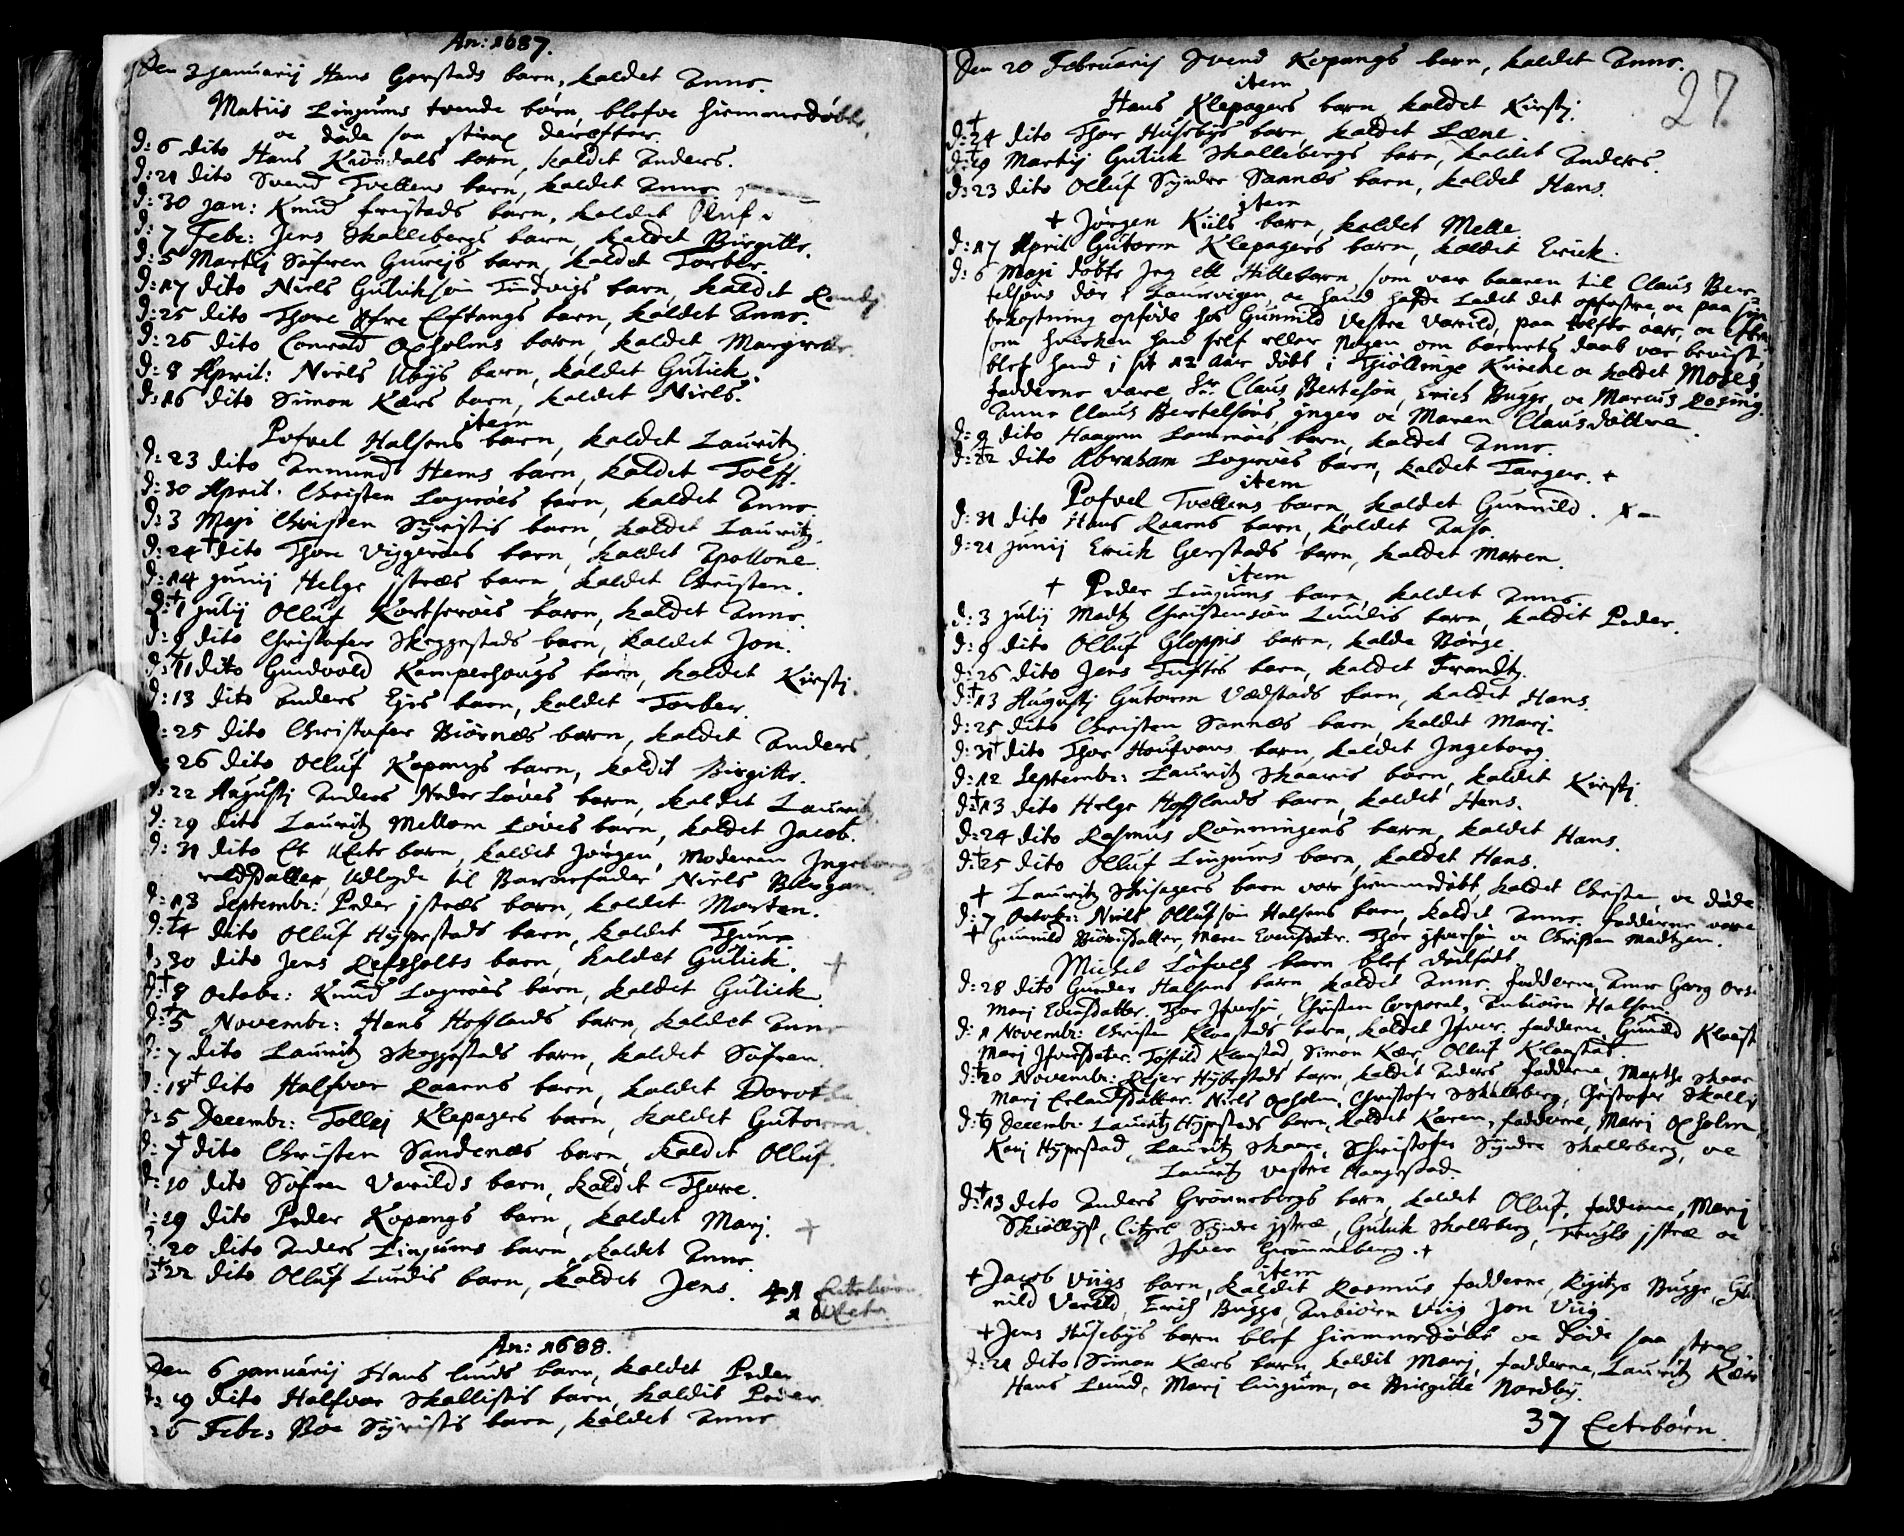 An: 1687.
Den 2 Januarij Hans Gerstads barn, kaldet Anne.
Matiis Lingums tvende børn, blefve hiemmedøbte,
oc døde saa strax derefter.
d: 6 dito Hans Krøndals barn, kaldet Anders.
d: 21 dito Svend Tvetens barn, kaldet Anne
d: 30 Jan: Knud fristads barn, kaldet Oluf
d: 7 Febr: Jens Skallebergs barn, kaldet Birgitte.
d: 5 Martij Søfren Gurejs barn, kaldet Torber.
d: 17 dito Niels Gulicksøn Tindvigs barn, kaldet Randj
d: 25 dito Thore Øfre Eftangs barn, kaldet Anne.
d: 26 dito Conrad Oxholms barn, kaldet Margrete.
d: 8 April: Niels Ubys barn, kaldet Gulick.
d: 16 dito Simon Kærs barn, kaldet Niels.
item
Pofvel Halsens barn, kaldet Lauritz
d: 23 dito Anmund Hems barn, kaldet Toleff.
d: 30 April. Christen Lagerøes barn, kaldet Anne
d: 3 Maji Christen Syristis barn, kaldet Lauritz.
d: 24 † dito Thore Viggerøes barn, kaldet Apollone.
d: 14 Junij Helge Istræs barn, kaldet Christen.
d: † 1 Julij Olluf Kortserøes barn, kaldet Anne.
d: 9 dito Christofer Skeggestads barn, kaldet Jon.
d: † 11 dito Gundvold Kamperhougs barn, kaldet Kirstj.
d: 13 dito Anders Ejrs barn, kaldet Torber.
: 25 dito Christofer Biørnæs barn, kaldet Anders
: 26 dito Olluf Kopangs barn, kaldit Birgitte.
d: 22 Augustj Anders Neder Løves barn, kaldet Lauritz
d: 29 dito Lauritz Mellom Løves barn, kaldet Jacob.
d: 31 dito Et Uecte barn, kaldet Jørgen, Moderen Ingeborg
datter, Udlagde til Barnefader Niels
d: 18 Septembr: Peder Istræs barn, kaldet Morten.
d: † 4 dito Olluf Hybestads barn, kaldet Thune
d: 30 dito Jens Refsholts barn, kaldet Gulick. †
d: † 8 Octobr: Knud Lagerøes barn, kaldet Gulick
d: † 5 Novembr: Hans Hofflands barn, kaldet Anne
d: 7 dito Lauritz Skeggestads barn, kaldet Søfren.
: 18 † dito Halfvor Raarns barn, kaldet Dorothe
: 5 Decembr: Tollej Klepagers barn, kaldet Gutorm.
: 7 † dito Christen Sandenæs barn, kaldet Olluf.
: 10 dito Søfren Varilds barn, kaldet Thore.
: 19 dito Peder Kopangs barn, kaldet Marj. †
: 20 dito Anders Lingums barn, kaldet Anne.
: † 22 dito Olluf Lundis barn, kaldet Jens.
41 Ectebørn
1 Uecte.
An: 1688.
Den 6 Januarij Hans Lunds barn, kaldet Peder
: 19 dito Halfvor Skallistis barn, kaldit Peder
: 6 Febr: Boe Syristis barn, kaldet Anne
27
Den 20 Februarij Svend Kopangs barn, kaldet Anne.
item
Hans Klepagers barn, kaldet Kirstj.
d: † 24 dito Thor Husebys barn, kaldet Læne.
d: † 19 Martij Gulick Skallebergs barn, kaldit Anders.
d: 23 dito Olluf Syndre Sannæs barn, kaldet Hans.
item
† Jørgen Kiils barn, kaldet Mette.
d: 17 April Gutorm Klepagers barn, kaldet Erick.
d: 6 Maji døbte Jeg ett Hittebarn som var baaren til Claus Ber-
telsøns dør i Laurvigen, oc hand hafde ladet det opfostre, oc paa sin
bekostning opføde hos Gunnild Vestre Varild, paa tolfte aar, oc efter
som hverken hand self eller nogen om barnets daab var bevist,
blef hand i sit 12 aar døbt i Tiøllinge Kircke oc kaldet Moses,
fadderne vare, Sr. Claus Bertelsøn, Erich Bugge, oc Marcus Rosing
Anne Claus Bertelsøns, Inger oc Maren Clausdøttre.
d: 9 dito Haagen Lamerøes barn, kaldet Anne.
d: † 22 dito Abraham Lagerøes barn, kaldet Targer. †
item
Pofvel Tvetens barn, kaldet Gunnild.
d: 31 dito Hans Raarns barn, kaldet Aase.
d: 21 Junij Erick Gerstads barn, kaldet Maren.
item
† Peder Lingums barn, kaldet Anne
d: 3 Julij Madtz Christensøn Lundis barn, kaldit Peder.
d: 9 dito Olluf Gloppis barn, kalde Børge.
d: 26 dito Jens Tuftes barn, kaldet Frandtz.
d: † 13 Augustj Gutorm Vædstads barn, kaldit Hans.
d: 25 dito Christen Sannæs barn, kaldet Marj.
d: 31 † dito Thor Houfvans barn, kaldet Ingeborg
d: 12 Septembr: Lauritz Skaaris barn, kaldet Kirstj.
d: † 13 dito Helge Hofflands barn, kaldet Hans.
d: 24 dito Rasmus Rønningens barn, kaldet Hans.
d: † 25 dito Olluf Lingums barn, kaldet Hans.
† Lauritz Skisagers barn var hiemmedøbt, kaldet Christen, oc døde
d: 7 Octobr: Niels Ollufsøn Halsens barn, kaldet Anne. fadderne vare
† Gunnild Biørnsdatter, Maren Evensdater. Thor Ifversøn oc Christen Madtzen.
Michel Løfvels barn blef dødfødt
d: 28 dito Gunder Halsens barn, kaldet Anne. fadderne, Anne Georg
Marj Evensdatter. Thor Ifversøn, Christen Corporal, Anbiørn Halsen.
d: 1 Novembr: Christen Klaastads barn, kaldet Ifver. fadderne, Gunild Klaast
Marj Ifversdatter. Tostild Klaastad, Simon Kær, Olluf Klaastad
d: † 20 Novembr: Rejer Hybestads barn, kaldet Anders fadderne, Marthe Skaar
Marj Erlandsdatter. Niels Oxholm, Christofer Skalleberg, Christofer Skallij
d: † 9 Decembr: Lauritz Hybestads barn, kaldet Karen, fadderne, Marj Oxholm,
Karj Hybestad, Lauritz Skaare, Christofer Syndre Skalleberg, oc
Lauritz Vestre Haagestad.
d: † 13 dito Anders Grønnebergs barn, kaldet Olluf, fadderne, Marj
Skiøllyst, Citzel Syndre Istræ, Gulick Skalleberg, Truls Istræ oc
Ifver Grønneberg. †
item
† Jacob Viigs barn, kaldet Rasmus, fadderne, Rigitze Bugge, Gu
nild Varild, Erich Bugge, Anbiørn Viig, Jon Viig
† Jens Husebys barn blef hiemmedøbt oc døde saa strax
d: 21 dito Simon Kærs barn, kaldit Marj, fadderne, Lauritz Kær
Hans Lund, Marj Lingum, oc Birgitte Nordby.
37 Ectebørn.